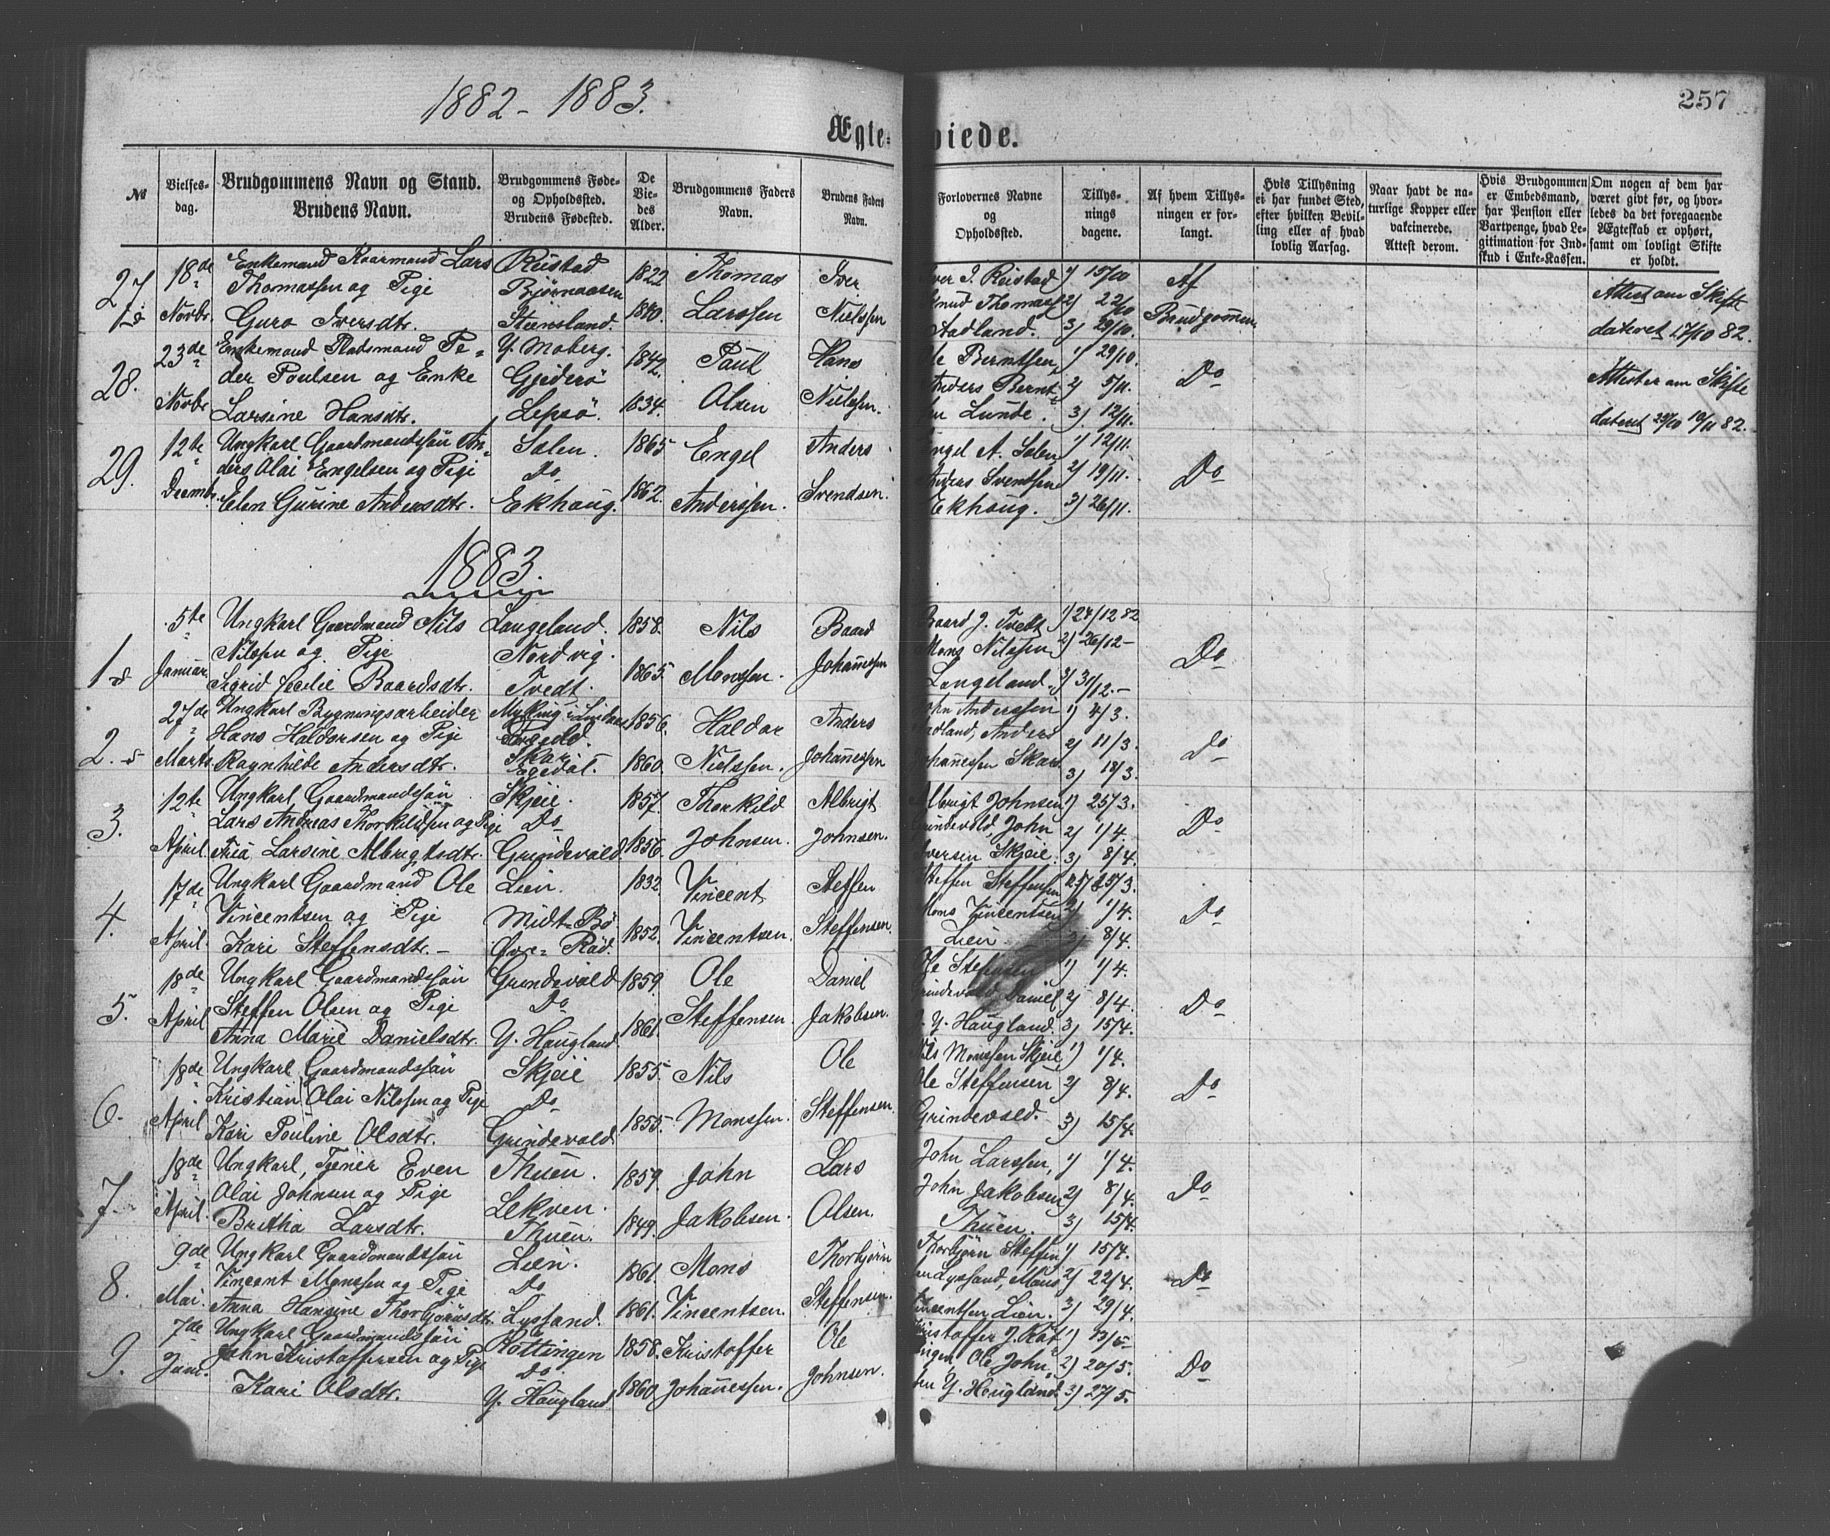 1882 - 1883.
257
Ægte=viede.
No
Vielses-
dag.
Brudgommens Navn og Stand.
Brudens Navn.
Brudgommens Føde-
og Opholdssted.
Brudens Fødested.
De
Vie-
des
Alder.
Brudgommens Faders
Navn.
Brudens Faders
Navn.
Forlovernes Navne
og
Opholdssted.
Tillys-
nings
dagene.
Af hvem Tillys-
ningen er for-
langt.
Hvis Tillysning
ei har fundet Sted,
efter hvilken Bevil-
ling eller af hvad
lovlig Aarsag.
Naar havt de na-
turlige Kopper eller
vakcinerede.
Attest derom.
Hvis Brudgommen
er Embedsmand,
har Pension eller
Vartpenge, hvad Le-
gitimation for Ind-
skud i Enke-Kassen.
Om nogen af dem har
været givt før, og hvor-
ledes da det foregaaende
Ægteskab er ophørt,
samt om lovligt Skifte
er holdt.
27
18de Novbr.
Enkemand Kaarmand Lars
Thomassen og Pige
Guro Iversdtr.
Reistad
Bjørnaasen
Steensland.
1822
1840.
Thomas
Larssen
Iver
Nielssen
Iver I. Reistad
Knud Thomas
Aadland.
1) 15/10
2) 22/10
3) 29/10.
Af
Brudgommen
Attest om Skifte
dateret 17/10 82.
28.
23de Novbr
Enkemand Pladsmand Pe-
der Poulsen og Enke
Larsine Hansdtr.
Y. Moberg.
Gjederö
Lepsö.
1842.
1834.
Paul
Olsen
Hans
Nielssen.
Ole Berntsen,
Anders Bernt-
sen Lunde.
1) 29/10.
2) 5/11.
3) 12/11.
Do
Attester om Skifte
dateret 29/10 19/11 82.
29.
12te Decembr.
Ungkarl Gaardmandssön An-
ders Olai Engelsen og Pige
Elen Gurine Andersdtr.
Solen.
Do
Ekhaug.
1865
1862.
Engel
Anderssen.
Anders
Svendsen.
Engel A. Solen,
Anders Svendsen
Ekhaug.
1) 12/11.
2) 19/11.
3) 26/11.
Do
1883.
1
5te Januar.
Ungkarl Gaardmand Nils
Nilssen og Pige
Sigrid Cecilie Baardsdtr.
Langeland.
Nordvig.
Tvedt.
1858.
1865.
Nils
Monssen.
Baard
Johanessen
Baard J. Tvedt
Mons Nilssen
Langeland.
1) 24/12 82
2) 26/12 -
3) 31/12. -
Do
2.
27de Marts
Ungkarl Bygningsarbeider
Hans Haldorsen og Pige
Ragnhilde Andersdtr.
Skar
Egedal.
1856.
1860.
Haldor
Nielssen.
Anders
Johanessen
John Anderssen
Aadland, Anders
Johanessen Skar
1) 4/3.
2) 11/3.
3) 18/3.
Do
3.
12te April.
Ungkarl Gaardmandssön
Lars Andreas Thorkildsen og Pige
Thea Larsine Albrigtsdtr.
Skjeie.
Do
Grindevold.
1857.
1856.
Thorkild
Johnsen.
Albrigt
Johnsen.
Albrigt Johnsen
Grindevold, John
Iversen Skjeie.
1) 25/3.
2) 1/4.
3) 8/4.
Do
4.
17de April.
Ungkarl Gaardmand Ole
Vincentsen og Pige
Kari Steffensdtr. -
Lien.
Midt-Bö
Övre-Röd.
1832
1852.
Vincent
Vincentsen.
Steffen
Steffensen.
Steffen Steffensen
Mons Vincentsen
Lien.
1) 25/3.
2) 1/4.
3) 8/4.
Do
5.
18de April
Ungkarl Gaardmandssön
Steffen Olsen og Pige
Anna Marie Danielsdtr.
Grindevold
Do
Y. Haugland.
1859.
1861.
Ole
Steffensen
Daniel
Jakobsen.
Ole Steffensen
Grindevold, Daniel
J. Y. Haugland.
1) 1/4.
2) 8/4.
3) 15/4.
Do
6.
18de April
Ungkarl Gaardmandssön
Kristian Olai Nilssen og Pige
Kari Pouline Olsdtr.
Skjeie
Do
Grindevold.
1855.
1855.
Nils
Monssen.
Ole
Steffensen.
Nils Monssen Skjeie
Ole Steffensen
Grindevold.
1) 1/4.
2) 8/4.
3) 15/4.
Do
7.
18de April.
Ungkarl, Tjener Even
Olai Johnsen og Pige
Britha Larsdtr.
Thuen.
Lekven.
Thuen.
1859.
1849.
John
Jakobsen.
Lars
Olsen.
John Larssen,
John Jakobsen
Thuen.
1) 1/4.
2) 8/4.
3) 15/4.
Do
8.
9de Mai.
Ungkarl Gaardmandssön
Vincent Monssen og Pige
Anna Hansine Thorbjörnsdtr.
Lien.
Do
Lysand.
1861.
1861.
Mons
Vincentsen.
Thorbjørn
Steffensen.
Thorbjørn Steffen-
sen Lyssand, Mons
Vincentsen Lien.
1) 15/4.
2) 22/4.
3) 29/4.
Do
9.
7de Juni.
Ungkarl Gaardmandssön
John Kristoffersen og Pige
Kari Olsdtr.
Röttingen
Do.
Y. Haugland.
1858.
1860.
Kristoffer
Johanessen.
Ole
Johnsen.
Kristoffer J. Röt-
tingen, Ole John-
sen Y. Haugland.
1) 13/5.
2) 20/5.
3) 27/5.
Do